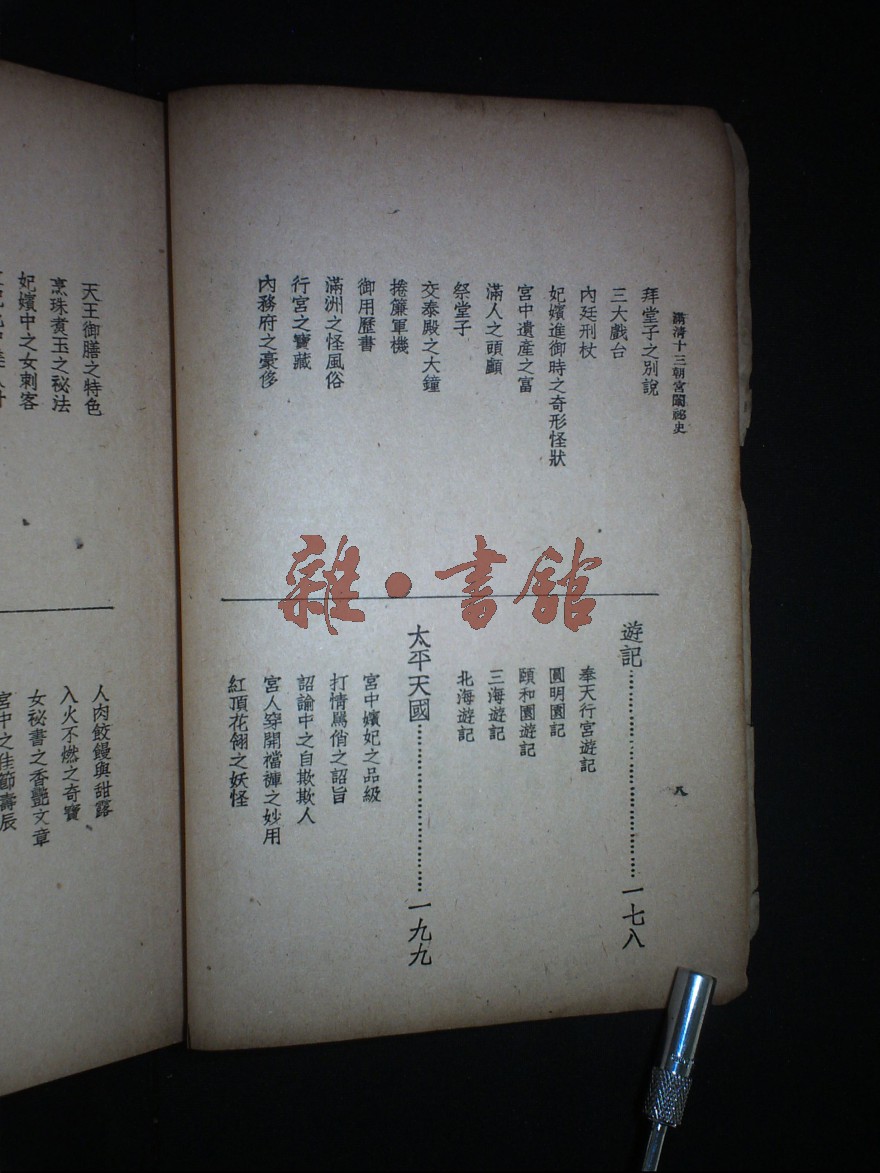 滿清十三朝宮闈祕史
八
拜堂子之別說
三大戲台
內廷刑杖
妃嬪進御時之奇形怪狀
宮中遺產之富
滿人之頭顱
祭堂子
交泰殿之大鐘
捲簾軍機
御用歷書
滿洲之怪風俗
行宮之寶藏
內務府之豪侈
遊記⋯⋯⋯⋯⋯⋯⋯⋯一七八
奉天行宮遊記
圓明園記
頤和園遊記
三海遊記
北海遊記
太平天國⋯⋯⋯⋯⋯⋯一九九
宮中嬪妃之品級
打情駡俏之詔旨
詔諭中之自欺欺人
宮人穿開襠褲之妙用
紅頂花翎之妖怪
天王御膳之特色
烹珠煮玉之秘法
妃嬪中之女刺客
人肉餃饅與甜露
入火不燃之奇寶
女秘書之香艷文章
宮中之佳節壽辰
雜·書館